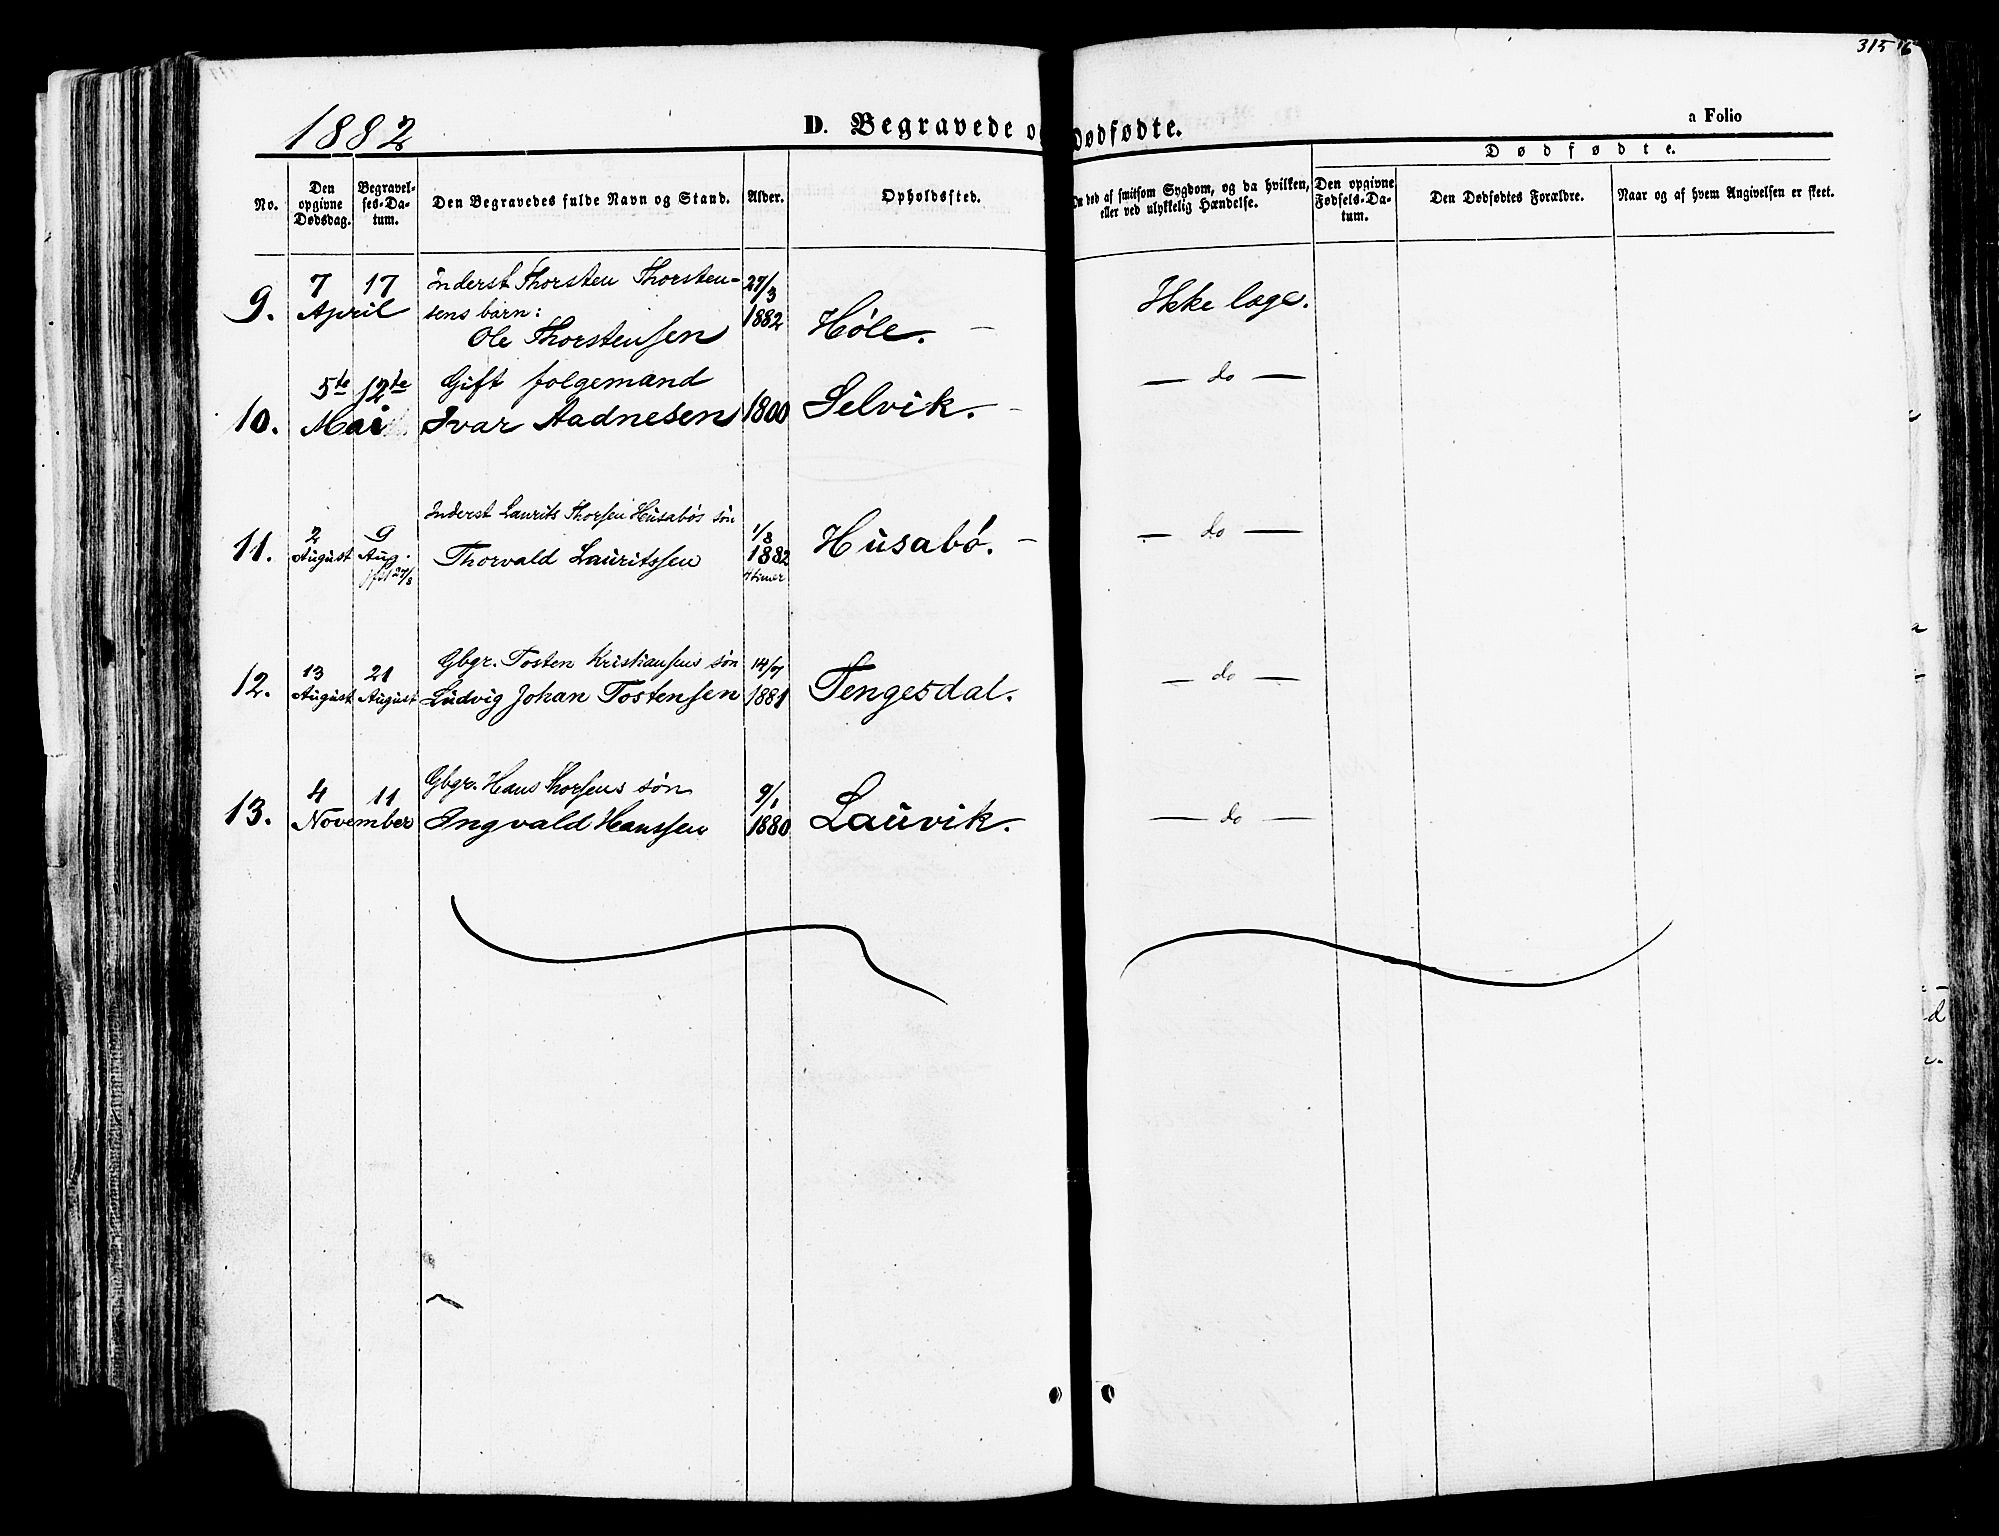 315
1882
D. Begravede og Dødfødte.
a Folio
No.
Den opgivne Dødsdag.
Begravelses-Datum.
Den Begravedes fulde Navn og Stand.
Alder.
Opholdssted.
død af smitsom Sygdom, og da hvilken, eller ved ulykkelig Hændelse.
Dødfødte.
Den opgivne Fødsels-Datum.
Den Dødfødtes Forældre.
Naar og af hvem Angivelsen er skeet.
9. 7 17 April Inderst Thorsten Thorsten-
sens barn:
Ole Thorstensen 27/3 1882 Høle. – Ikke læge.
10. 5te 12te Mai Gift folgemand
Ivar Aadnesen 1800 Selvik. – — do —
11. 2 August 9 Aug. jfst 27/8 Inderst Laurits Thorsen Húsabøs søn
Thorvald Lauritssen 1/8 1882 4 timer Húsabø. – — do —
12. 13 August 21 August Gbgr. Tosten Kristiansens søn
Ludvig Johan Tostensen 14/7 1881 Tengesdal. — do —
13. 4 11 November Gbgr. Hans Thorsens søn
Ingvald Hanssen 9/1 1880 Lauvik. — do —